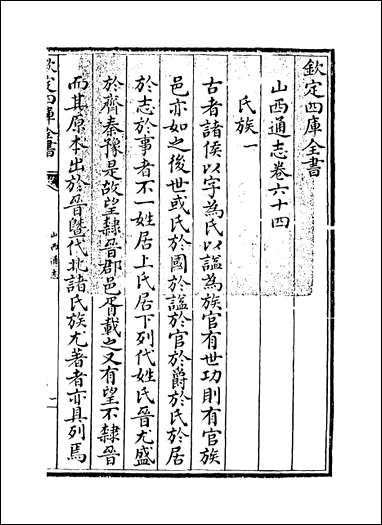 欽定四庫全書
山西通志卷六十四
氏族一
古者諸侯以字為氏以諡為族官有世功則有官族
邑亦如之後世或氏於國於諡於官於爵於氏於居
於志於事者不一姓居上氏居下列代姓氏晉尤盛
於齊秦豫是故望隸晉郡邑胥載之又有望不隸晉
而其原本出於晉暨代北諸氏族尤著者亦具列焉
欽定四庫全書
山西通志
一